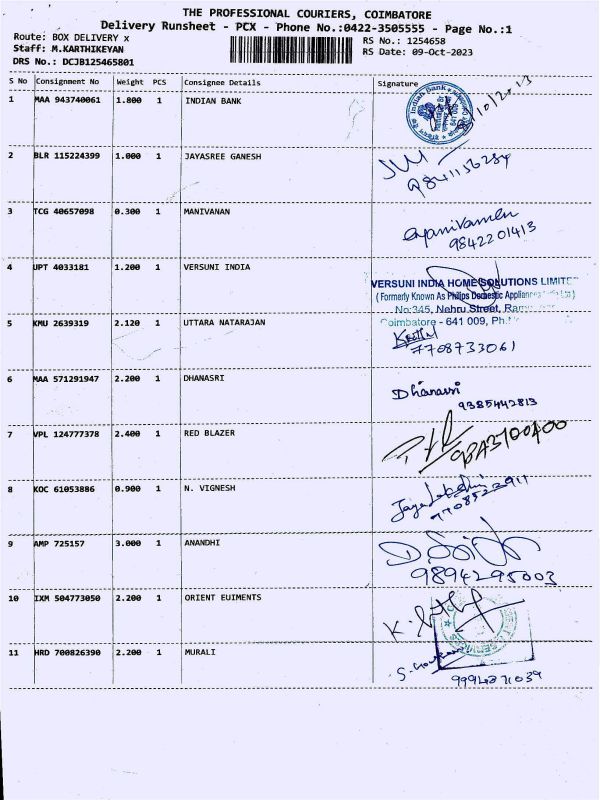 THE PROFESSIONAL COURIERS, COIMBATORE
Delivery Runsheet - PCX - Phone No.:0422-3505555 - Page No.:1
Route: BOX DELIVERY x
RS No.: 1254658
Staff: M.KARTHIKEYAN
RS Date: 09-Oct-2023
DRS No.: DCJB125465801
S No Consignment No Weight PCS Consignee Details Signature
1 MAA 943740061 1.800 1 INDIAN BANK
Indian Bank
2 BLR 115224399 1.000 1 JAYASREE GANESH
3 TCG 40657098 0.300 1 MANIVANAN
9842201413
4 UPT 4033181 1.200 1 VERSUNI INDIA
VERSUNI INDIA HOME SOLUTIONS LIMITE
( Formerly Known As Philips Domestic Applianc
No:345, Nehru Street, Ram
Coimbatore - 641 009, Ph.
5 KMU 2639319 2.120 1 UTTARA NATARAJAN
7708733061
6 MAA 571291947 2.200 1 DHANASRI
Dhanasri
9385442813
7 VPL 124777378 2.400 1 RED BLAZER
8 KOC 61053886 0.900 1 N. VIGNESH
9 AMP 725157 3.000 1 ANANDHI
9894295003
10 IXM 504773050 2.200 1 ORIENT EUIMENTS
11 HRD 700826390 2.200 1 MURALI